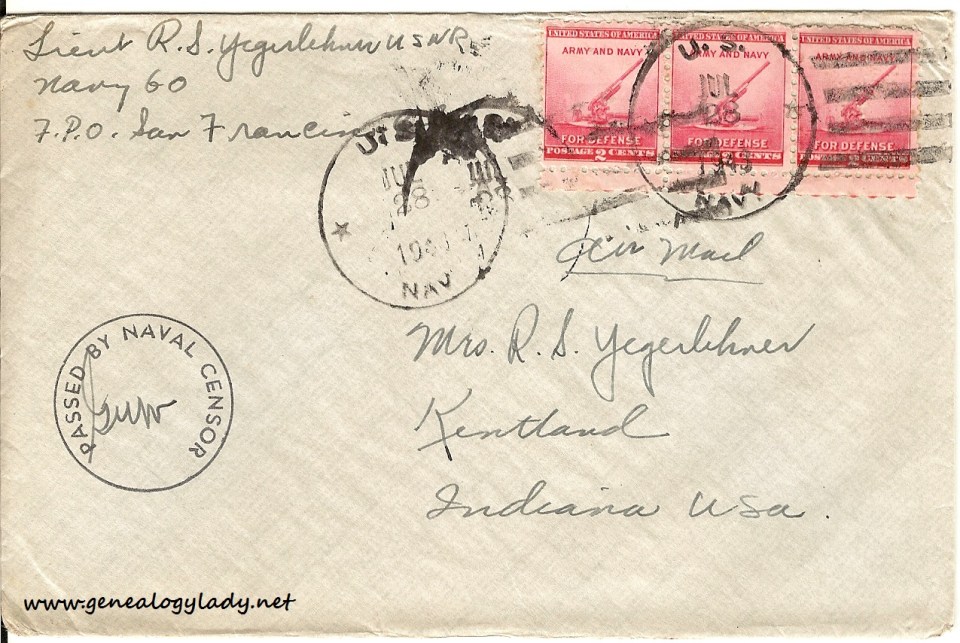 Lieut R. S. Yegerlehner USNR
Navy 60
F.P.O. San Francisco
UNITED STATES OF AMERICA
ARMY AND NAVY
FOR DEFENSE
POSTAGE 2 CENTS
UNITED STATES OF AMERICA
ARMY AND NAVY
FOR DEFENSE
CENTS
UNITED STATES OF AMERICA
ARMY AND NAVY
FOR DEFENSE
CENTS
U. S.
JUL
28
NAVY
U.S.
JUL
28
NAV
Air Mail
Mrs. R. S. Yegerlehner
Kentland
Indiana USA.
PASSED BY NAVAL CENSOR
www.genealogylady.net